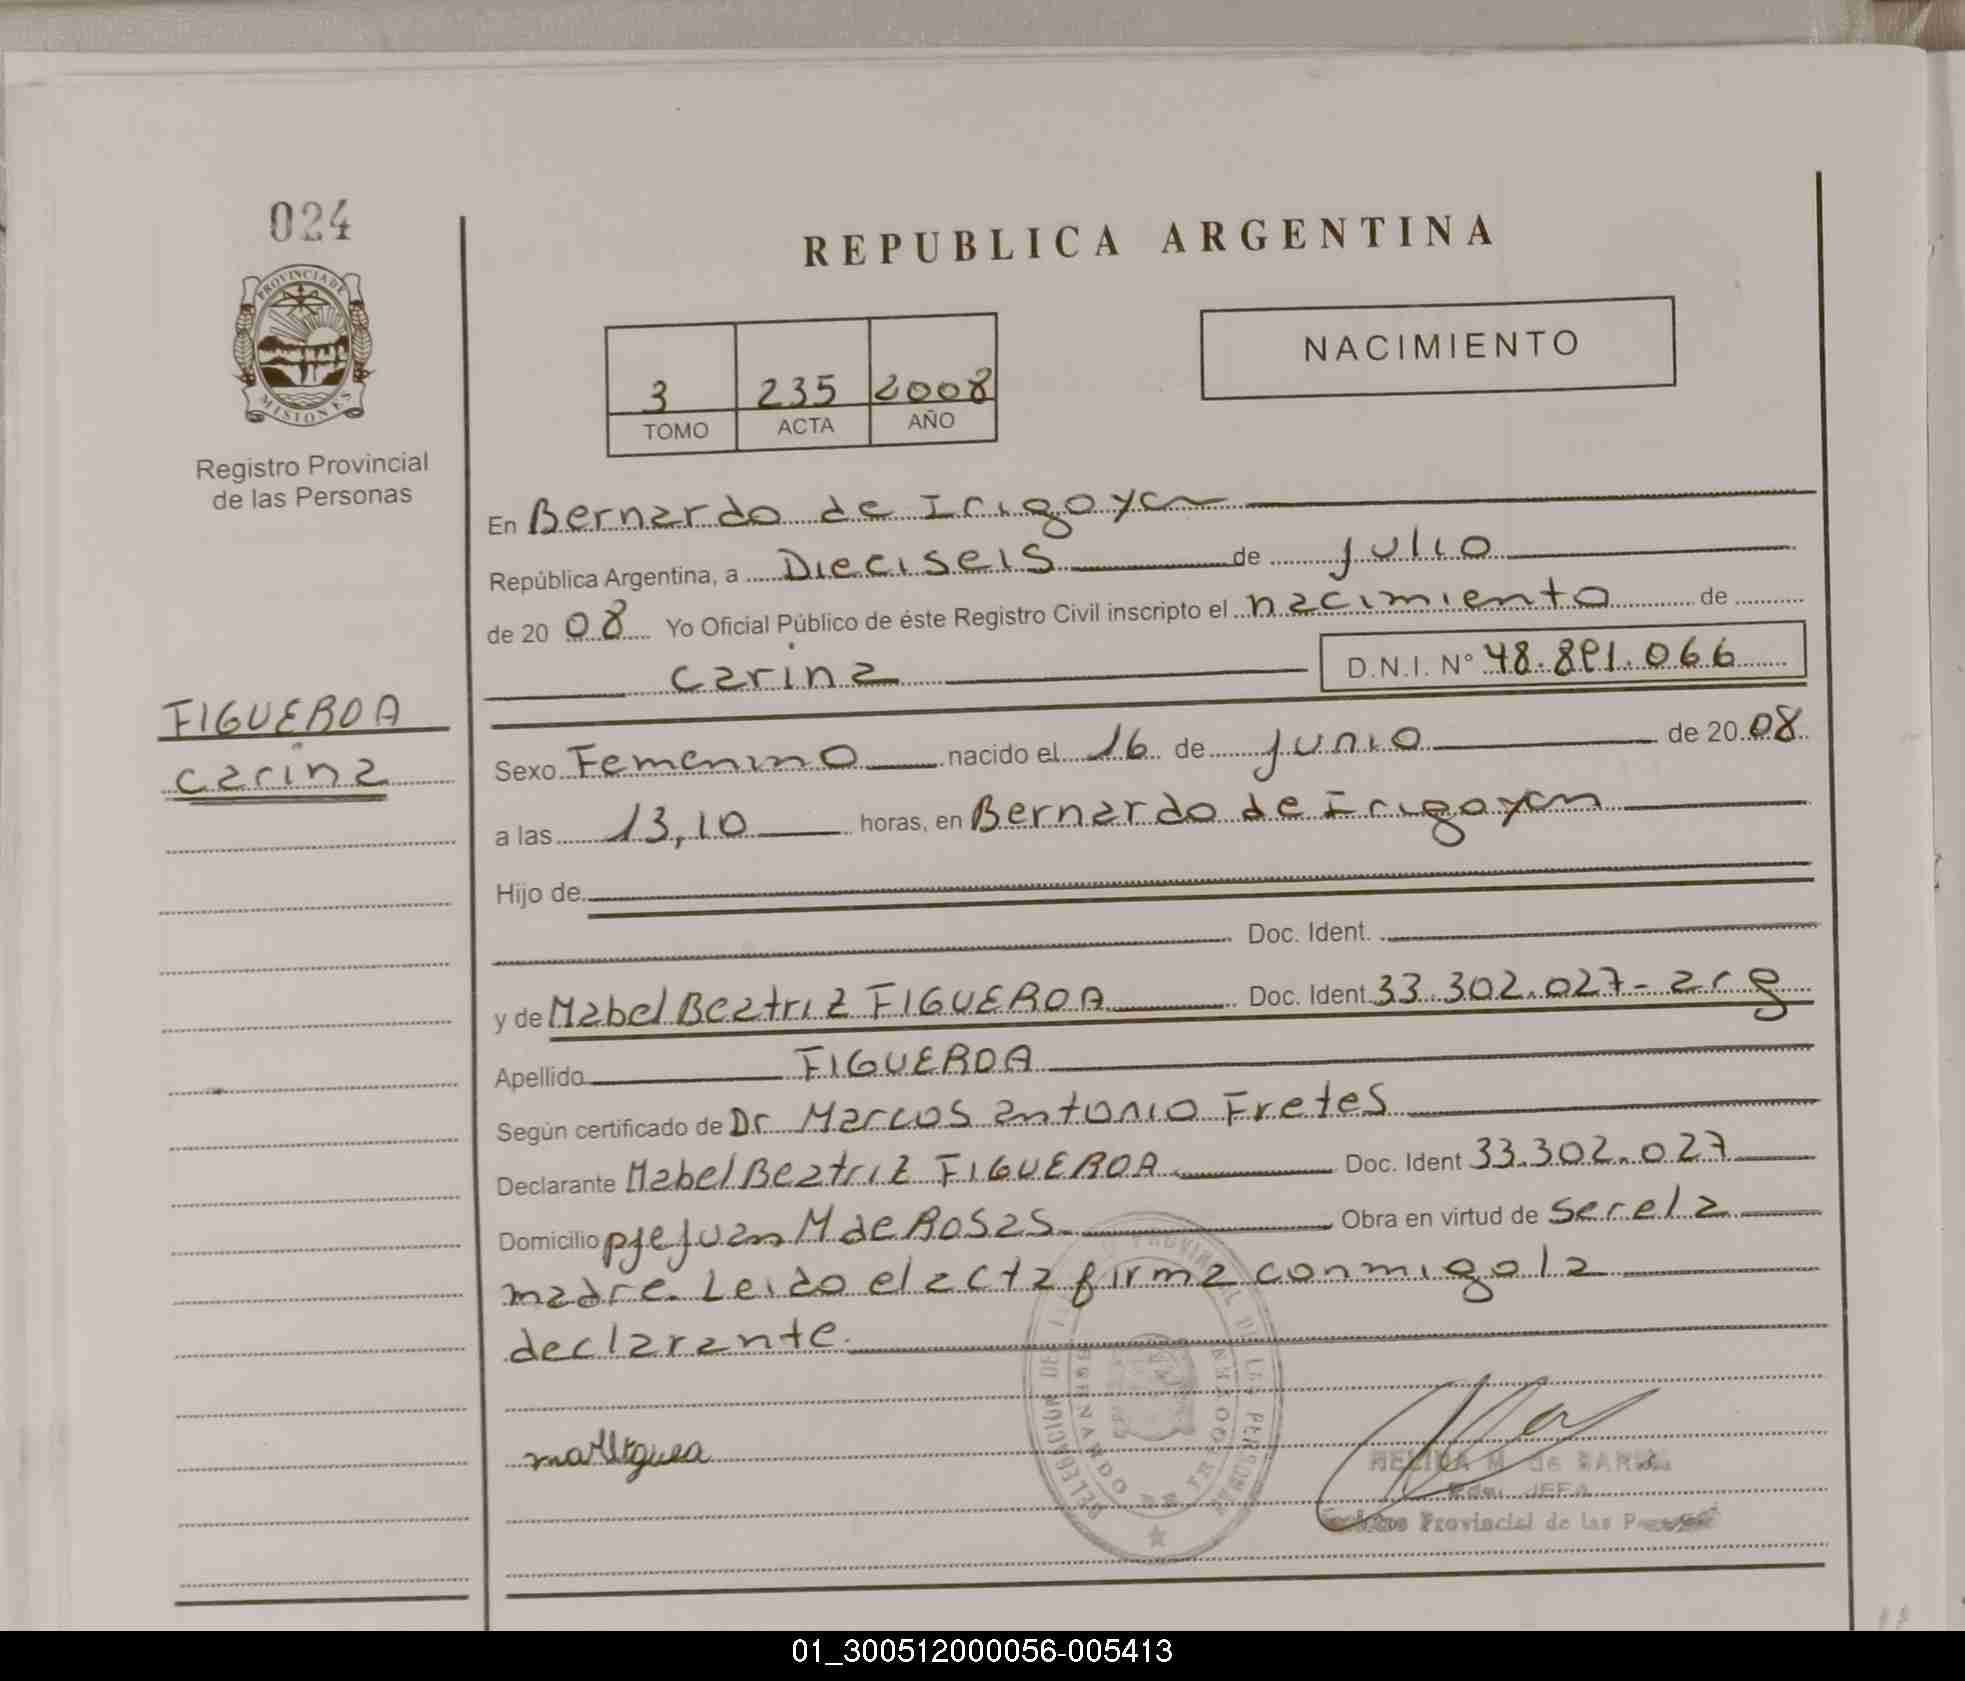 024
REPUBLICA ARGENTINA
PROVINCIA DE
MISIONES
NACIMIENTO
3 235 2008
TOMO ACTA AÑO
Registro Provincial
de las Personas
En Bernardo de Irigoyen
República Argentina, a Dieciseis de julio
de 20 08 Yo Oficial Público de éste Registro Civil inscripto el nacimiento de
carina D.N.I. N° 48.891.066
FIGUEROA
carina
Sexo Femenino nacido el 16 de junio de 20 08
a las 13,10 horas, en Bernardo de Irigoyen
Hijo de
Doc. Ident.
y de Mabel Beatriz FIGUEROA Doc. Ident. 33.302.027- arg
Apellido FIGUEROA
Según certificado de Dr Marcos antonio Fretes
Declarante Mabel Beatriz FIGUEROA Doc. Ident 33.302.027
Domicilio pje juan M de Rosas Obra en virtud de ser el a
madre. Leido el acta firma conmigo la
declarante.
Provincial de las
01_300512000056-005413